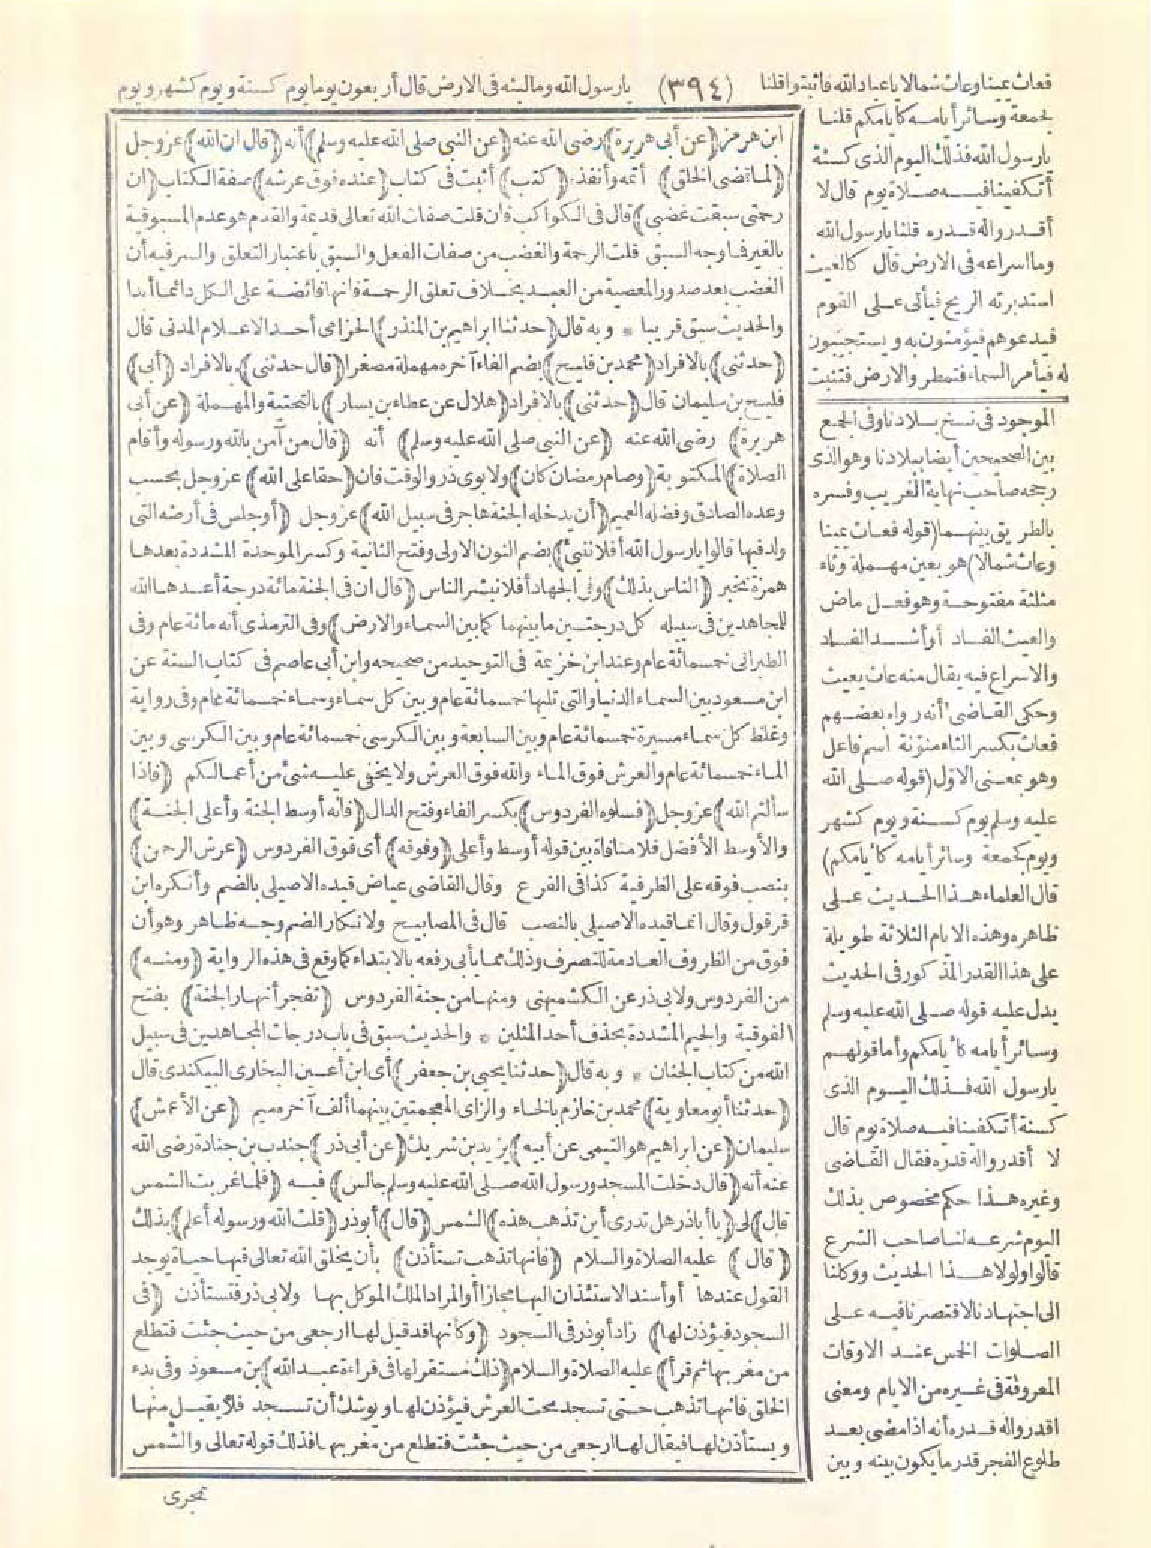 فعاث يمينا وعاث شمالا يا عباد الله فاثبتوا قلنا (٣٩٤) يا رسول الله وما لبثه فى الارض قال أربعون يوما يوم كسنة ويوم كشهر ويوم
كجمعة وسائر أيامه كأيامكم قلنا
يا رسول الله فذلك اليوم الذى كسنة
أتكفينا فيه صلاة يوم قال لا
أقدروا له قدره قلنا يا رسول الله
وما اسراعه فى الارض قال كالغيث
استدبرته الريح فيأتى على القوم
فيدعوهم فيؤمنون به ويستجيبون
له فيأمر السماء فتمطر والارض فتنبت
الموجود فى نسخ بلادنا وفى الجمع
بين الصحيحين أيضا ببلادنا وهو الذى
رجحه صاحب نهاية الغريب وفسره
بالطريق بينهما (قوله فعاث يمينا
وعاث شمالا) هو بعين مهملة وثاء
مثلثة مفتوحة وهو فعل ماض
والعيث الفساد أو أشد الفساد
والاسراع فيه يقال منه عاث يعيث
وحكى القاضى أنه رواه بعضهم
فعاث بكسر الثاء منونة اسم فاعل
وهو بمعنى الاول (قوله صلى الله
عليه وسلم يوم كسنة ويوم كشهر
ويوم كجمعة وسائر أيامه كأيامكم)
قال العلماء هذا الحديث على
ظاهره وهذه الايام الثلاثة طويلة
على هذا القدر المذكور فى الحديث
يدل عليه قوله صلى الله عليه وسلم
وسائر أيامه كأيامكم وأما قولهم
يا رسول الله فذلك اليوم الذى
كسنة أتكفينا فيه صلاة يوم قال
لا أقدروا له قدره فقال القاضى
وغيره هذا حكم مخصوص بذلك
اليوم شرعه لنا صاحب الشرع
قالوا ولولا هذا الحديث ووكلنا
الى اجتهادنا لاقتصرنا فيه على
الصلوات الخمس عند الاوقات
المعروفة فى غيره من الايام ومعنى
اقدروا له قدره أنه اذا مضى بعد
طلوع الفجر قدر ما يكون بينه وبين
ابن هرمز (عن أبى هريرة) رضى الله عنه (عن النبى صلى الله عليه وسلم) أنه (قال ان الله) عز وجل
(لما قضى الخلق) أتمه وأنفذه (كتب) أثبت فى كتاب (عنده فوق عرشه) صفة الكتاب (ان
رحمتى سبقت غضبى) قال فى الكواكب فان قلت صفات الله تعالى قديمة والقدم هو عدم المسبوقية
بالغير فما وجه السبق قلت الرحمة والغضب من صفات الفعل والسبق باعتبار التعلق والسر فيه أن
الغضب بعد صدور المعصية من العبد بخلاف تعلق الرحمة فانها فائضة على الكل دائما أبدا
والحديث سبق قريبا * وبه قال (حدثنا ابراهيم بن المنذر) الحزامى أحد الاعلام المدنى قال
(حدثنى) بالافراد (محمد بن فليح) بضم الفاء آخره مهملة مصغرا (قال حدثنى) بالافراد (أبى)
فليح بن سليمان قال (حدثنى) بالافراد (هلال عن عطاء بن يسار) بالتحتية والمهملة (عن أبى
هريرة) رضى الله عنه (عن النبى صلى الله عليه وسلم) أنه (قال من آمن بالله ورسوله وأقام
الصلاة) المكتوبة (وصام رمضان كان) ولابوى ذر والوقت فان (حقا على الله) عز وجل بحسب
وعده الصادق وفضله العميم (أن يدخله الجنة هاجر فى سبيل الله) عز وجل (أو جلس فى أرضه التى
ولد فيها قالوا يا رسول الله أفلا ننبئ) بضم النون الاولى وفتح الثانية وكسر الموحدة المشددة بعدها
همزة نخبر (الناس بذلك) وفى الجهاد أفلا نبشر الناس (قال ان فى الجنة مائة درجة أعدها الله
للمجاهدين فى سبيله كل درجتين ما بينهما كما بين السماء والارض) وفى الترمذى أنه مائة عام وفى
الطبرانى خمسمائة عام وعند ابن خزيمة فى التوحيد من صحيحه وابن أبى عاصم فى كتاب السنة عن
ابن مسعود بين السماء الدنيا والتى تليها خمسمائة عام وبين كل سماء وسماء خمسمائة عام وفى رواية
وغلظ كل سماء مسيرة خمسمائة عام وبين السابعة وبين الكرسى خمسمائة عام وبين الكرسى وبين
الماء خمسمائة عام والعرش فوق الماء والله فوق العرش ولا يخفى عليه شئ من أعمالكم (فاذا
سألتم الله) عز وجل (فسلوه الفردوس) بكسر الفاء وفتح الدال (فانه أوسط الجنة وأعلى الجنة)
والأوسط الأفضل فلا منافاة بين قوله أوسط وأعلى (وفوقه) أى فوق الفردوس (عرش الرحمن)
بنصب فوقه على الظرفية كذا فى الفرع وقال القاضى عياض قيده الاصيلى بالضم وأنكره ابن
قرقول وقال انما قيده الاصيلى بالنصب قال فى المصابيح ولانكار الضم وجه ظاهر وهو أن
فوق من الظروف العادمة للتصرف وذلك مما يأبى رفعه بالابتداء كما وقع فى هذه الرواية (ومنه)
من الفردوس ولابى ذر عن الكشميهنى ومنها من جنة الفردوس (تفجر أنهار الجنة) بفتح
الفوقية والجيم المشددة بحذف أحد المثلين * والحديث سبق فى باب درجات المجاهدين فى سبيل
الله من كتاب الجنان * وبه قال (حدثنا يحيى بن جعفر) أى ابن أعين البخارى البيكندى قال
(حدثنا أبو معاوية) محمد بن خازم بالخاء والزاى المعجمتين بينهما ألف آخره ميم (عن الأعمش)
سليمان (عن ابراهيم هو التيمى عن أبيه) يزيد بن شريك (عن أبى ذر) جندب بن جنادة رضى الله
عنه أنه (قال دخلت المسجد ورسول الله صلى الله عليه وسلم جالس) فيه (فلما غربت الشمس
قال) لى (يا أبا ذر هل تدرى أين تذهب هذه) الشمس (قال) أبو ذر (قلت الله ورسوله أعلم) بذلك
(قال) عليه الصلاة والسلام (فانها تذهب تستأذن) بأن يخلق الله تعالى فيها حياة يوجد
القول عندها أو أسند الاستئذان اليها مجازا أو المراد الملك الموكل بها ولابى ذر فتستأذن (فى
السجود فيؤذن لها) زاد أبو ذر فى السجود (وكأنها قد قيل لها ارجعى من حيث جئت فتطلع
من مغربها ثم قرأ) عليه الصلاة والسلام (ذلك مستقر لها فى قراءة عبد الله) بن مسعود وفى بدء
الخلق فانها تذهب حتى تسجد تحت العرش فيؤذن لها ويوشك أن تسجد فلا يقبل منها
ويستأذن لها فيقال لها ارجعى من حيث جئت فتطلع من مغربها فذلك قوله تعالى والشمس
تجرى